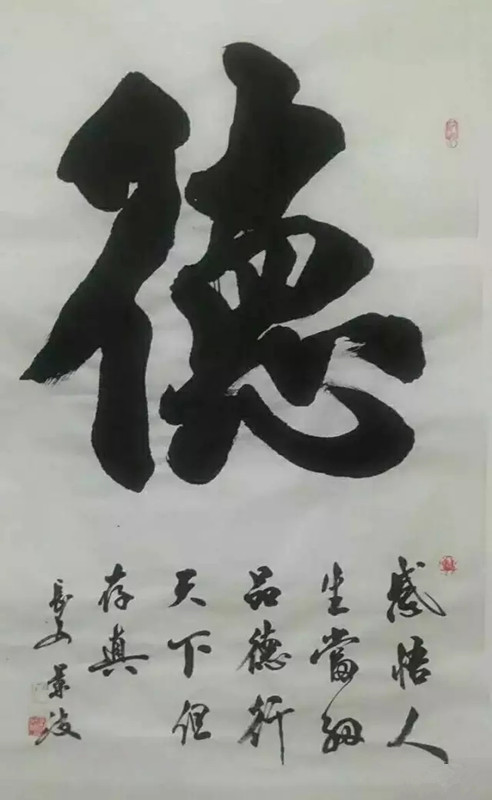 德
感悟人
生當細
品德行
天下但
存真
長安景波